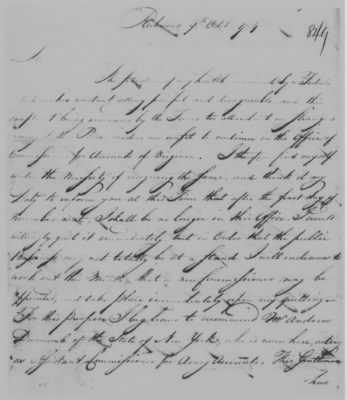 Richmond 9th Octr
849
Sir
The situation of my health
makes constant and disagreeable, and this
complaint being increased by the
to the Pen, makes me unfit to continue in the Office of
Commissioner for Accounts of Virginia. I therefore find myself
under the Necessity of resigning the same, and think it my
Duty to inform you at this Time that after the first day of
I shall be no longer in this Office. I would
willingly quit it immediately but in Order that the public
Business may not totally be at a stand I will endeavour to
work out the Month, that a new Commissioner may be
Appointed, and take place immediately upon my quitting.
For this purpose I beg leave to recommend Mr Andrew
Dunscomb of the State of New York, who is now here, acting
as Assistant Commissioner for Army Accounts. This Gentleman
has